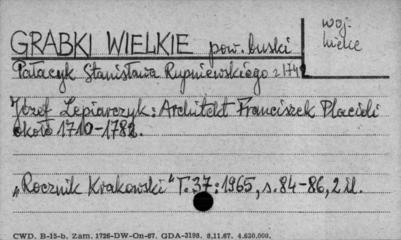 GRABKI WIELKIE pow. buski
woj. kielce
Pałacyk Stanisława Rupniewskiego z 1742
Józef Lepiarczyk: Architekt Franciszek Placidi
około 1710-1782.
„Rocznik Krakowski" T. 37: 1965, s. 84-86, 2 il.
CWD. B-15-b. Zam. 1726-DW-On-67. GDA-3198. 8.11.67. 4.630.000.